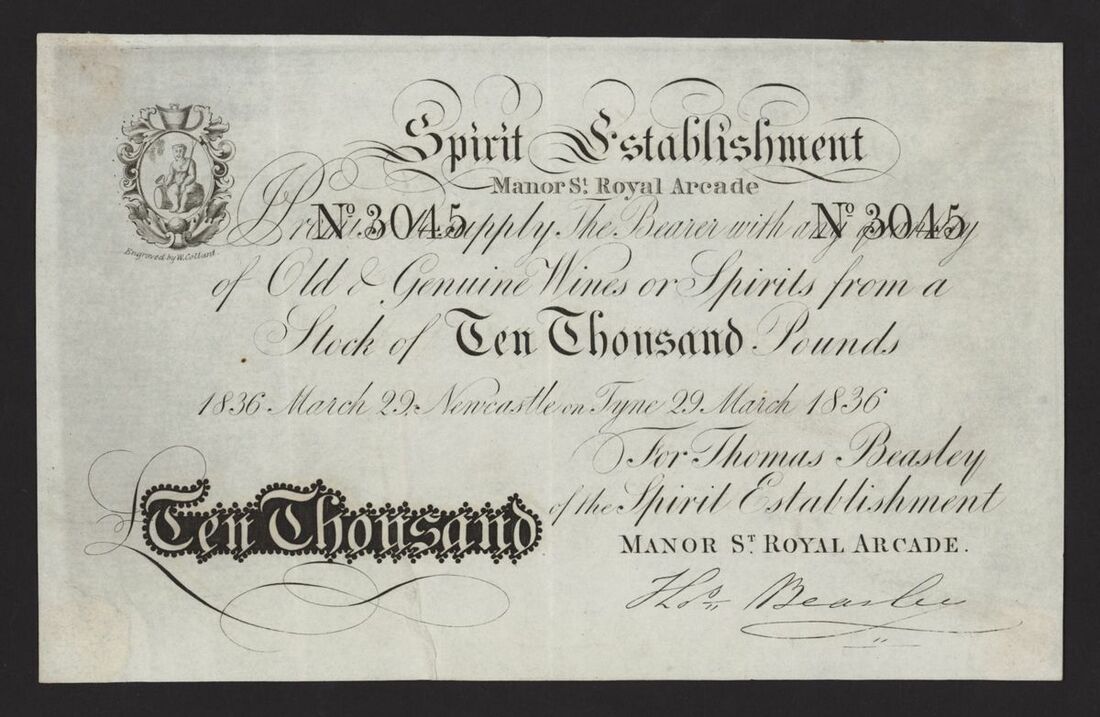 Spirit Establishment
Manor St. Royal Arcade
Engraved by W. Collard.
No. 3045 No. 3045
Promise to supply The Bearer with any quantity
of Old & Genuine Wines or Spirits from a
Stock of Ten Thousand Pounds
1836 March 29. Newcastle on Tyne 29 March 1836
For Thomas Beasley
£Ten Thousand
of the Spirit Establishment
MANOR ST ROYAL ARCADE.
Thos. Beasley